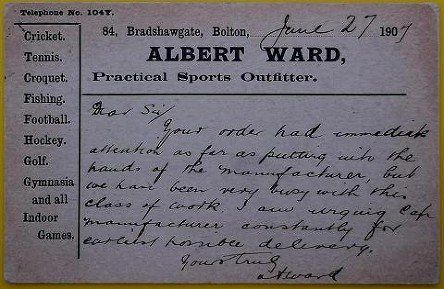 Telephone No. 104Y.
84, Bradshawgate, Bolton, June 27 1907
ALBERT WARD,
Practical Sports Outfitter.
Cricket.
Tennis.
Croquet.
Fishing.
Football.
Hockey.
Golf.
Gymnasia
and all
Indoor
Games.
Dear Sir
Your order had immediate
attention as far as putting into the
hands of the manufacturer, but
we have been very busy with this
class of work. I am urging Cap
manufacturer constantly for
earliest possible delivery.
Yours truly
A Ward